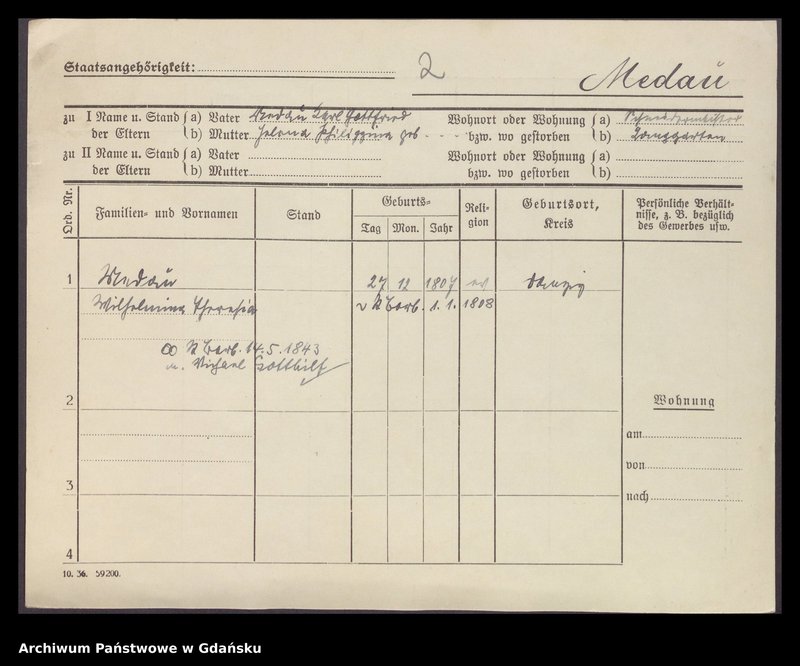 Staatsangehörigkeit:
2
Medau
zu I Name u. Stand a) Vater Medau Karl Gottfried Wohnort oder Wohnung a)
der Eltern b) Mutter Helena Philippina geb - - - bzw. wo gestorben b) Langgarten
zu II Name u. Stand a) Vater Wohnort oder Wohnung a)
der Eltern b) Mutter bzw. wo gestorben b)
Ord. Nr. Familien- und Vornamen Stand Geburts- Tag Mon. Jahr Reli-gion Geburtsort, Kreis Persönliche Verhält-nisse, z. B. bezüglich des Gewerbes usw.
1 Medau 27 12 1807 ev Danzig
Wilhelmina Theresia ~ St Barb. 1. 1. 1808
∞ St Barb. 14.5.1843
m. Michael Gotthilf
2
Wohnung
am
von
3
nach
4
10. 36. 59200.
Archiwum Państwowe w Gdańsku